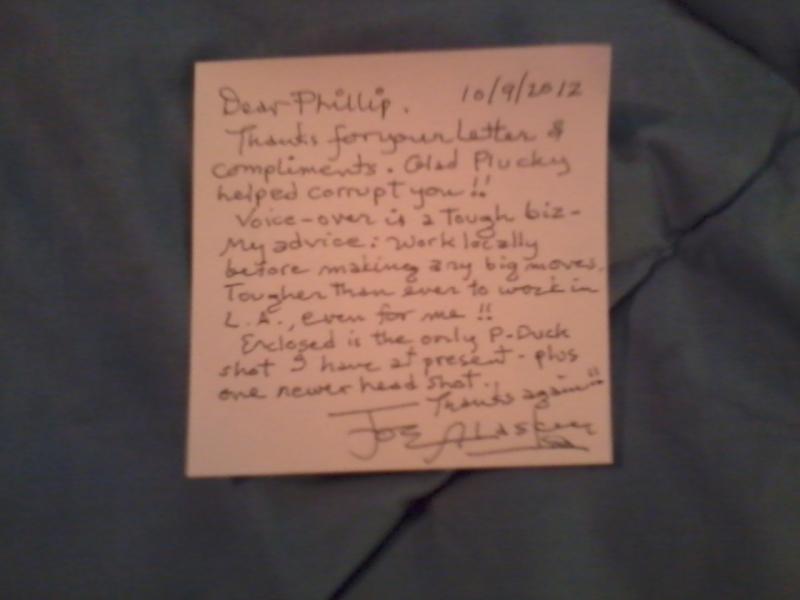 Dear Phillip. 10/9/2012
Thanks for your Letter &
compliments. Glad Plucky
helped corrupt you!!
Voice-over is a Tough biz-
My advice: Work locally
before making any big moves.
Tougher than ever to work in
L.A., even for me!!
Enclosed is the only P-Duck
shot I have at present - plus
one newer head shot.
Thanks again!!
Joe Alaskey